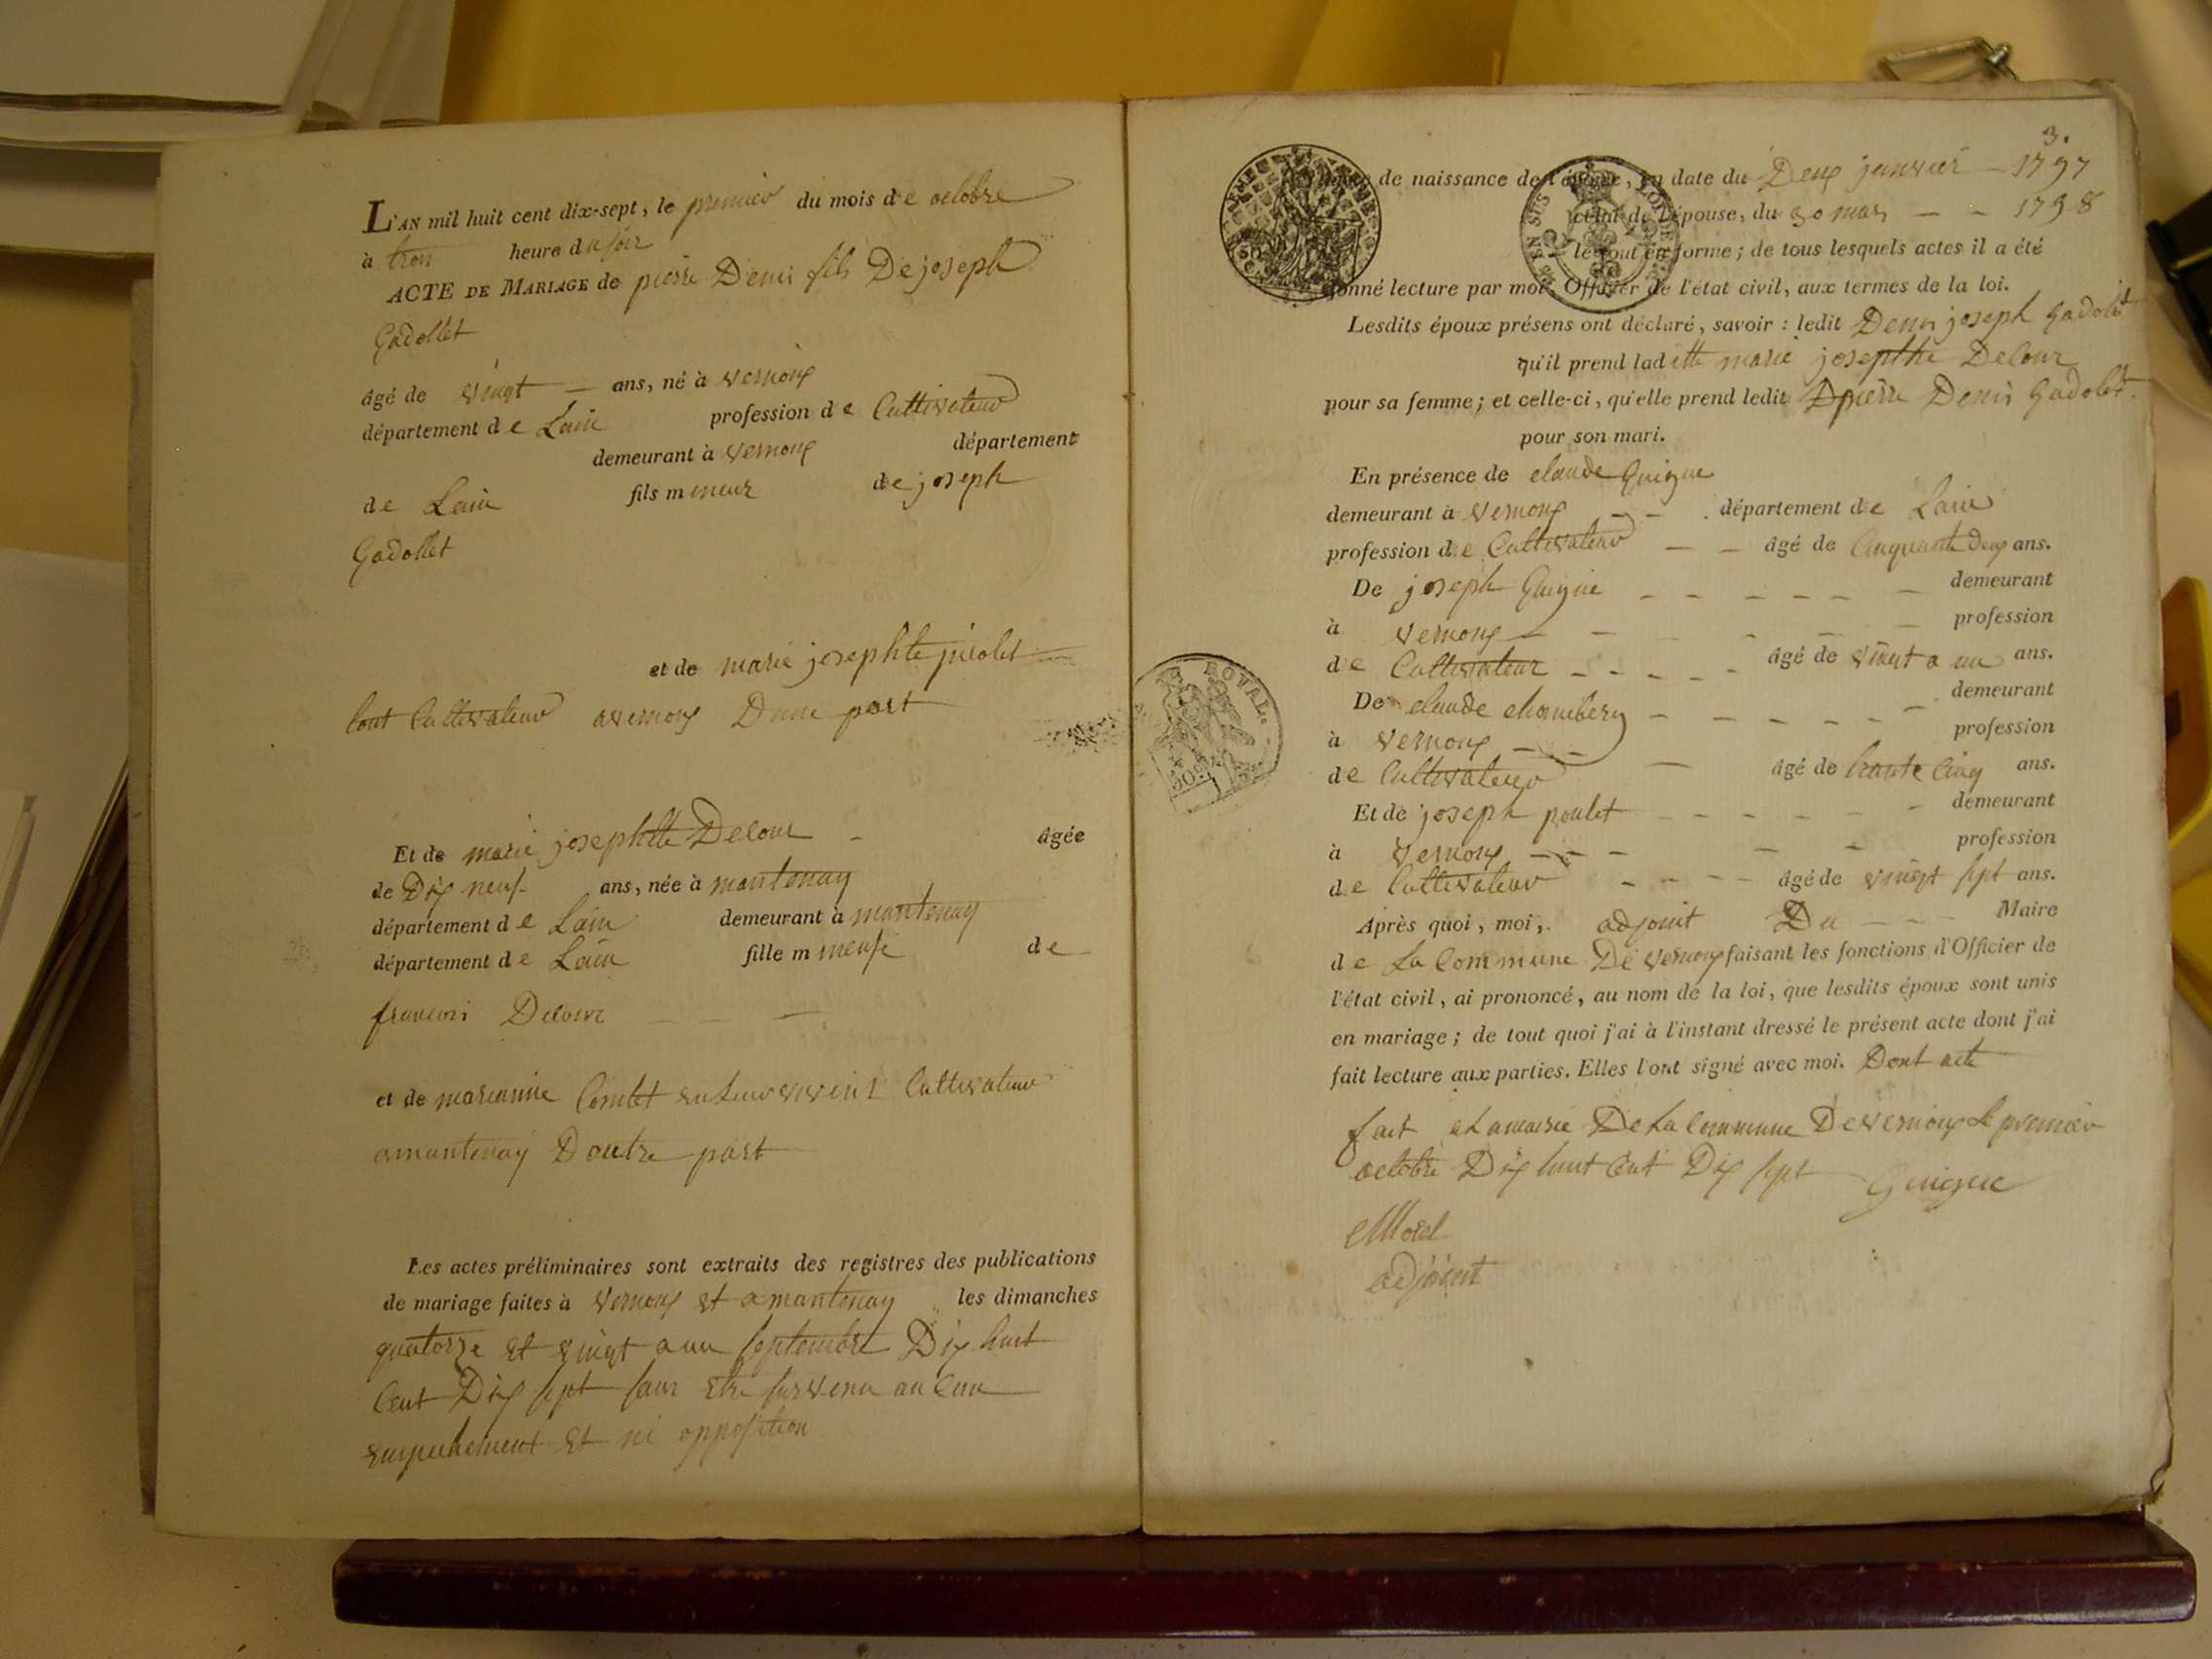 L'AN mil huit cent dix-sept, le premier du mois de octobre
à trois heure du soir
ACTE DE MARIAGE de pierre Denis fils De joseph
Gadollet
âgé de vingt — ans, né à vernoux
département de Lain profession de Cultivateur
demeurant à vernoux département
de Lain fils mineur de joseph
Gadollet
et de marie josephte
tout Cultivateur a vernoux Dune part
Et de marie josephtte Decour - âgée
de Dix neuf ans, née à mantenay
département de Lain demeurant à mantenay
département de Lain fille m de
francois Decour
et de marianne Comtet Cultivateur
a mantenay Dautre part
Les actes préliminaires sont extraits des registres des publications
de mariage faites à vernoux et a mantenay les dimanches
quatorze et vingt a un septembre Dix huit
Cent Dix sept sans etre survenu aucun
empechement et ni opposition
3.
de naissance de l'époux, en date du Deux janvier - 1797
celui de l'épouse, du 1798
le tout en forme ; de tous lesquels actes il a été
donné lecture par moi, Officier de l'état civil, aux termes de la loi.
Lesdits époux présens ont déclaré, savoir : ledit Denis joseph Gadolet
qu'il prend laditte marie josepthe Decour
pour sa femme ; et celle-ci, qu'elle prend ledit pierre Denis Gadolet
pour son mari.
En présence de claude Guigue
demeurant à vernoux — — département de Lain
profession de Cultivateur — — âgé de Cinquante deux ans.
De joseph Guigue — — — — — — demeurant
à vernoux — — — — — — profession
de Cultivateur — — — — — âgé de vingt a un ans.
De claude chambery — — — — — — demeurant
à vernoux — — profession
de Cultivateur — âgé de trante Cinq ans.
Et de joseph poulet — — — — — — demeurant
à vernoux — — — — — profession
de Cultivateur — — — — âgé de vingt sept ans.
Après quoi, moi, adjoint Du — — — Maire
de La Commune De vernoux faisant les fonctions d'Officier de
l'état civil, ai prononcé, au nom de la loi, que lesdits époux sont unis
en mariage ; de tout quoi j'ai à l'instant dressé le présent acte dont j'ai
fait lecture aux parties. Elles l'ont signé avec moi. Dont acte
fait a La mairie De La Commune De vernoux Le premier
octobre Dix huit Cent Dix sept Guigue
Morel
adjoint
ROYAL.